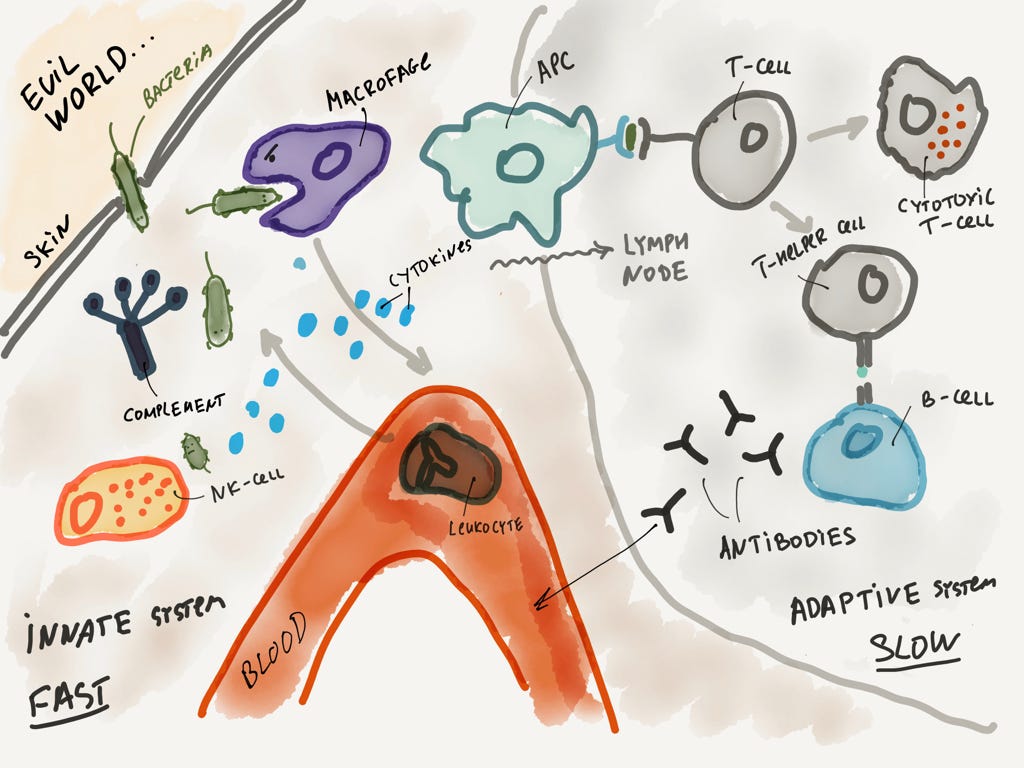 EVIL
WORLD...
BACTERIA
SKIN
MACROFAGE
APC
T-CELL
CYTOTOXIC
T-CELL
T-HELPER CELL
LYMPH
NODE
CYTOKINES
COMPLEMENT
NK-CELL
LEUKOCYTE
BLOOD
B-CELL
ANTIBODIES
INNATE SYSTEM
FAST
ADAPTIVE SYSTEM
SLOW